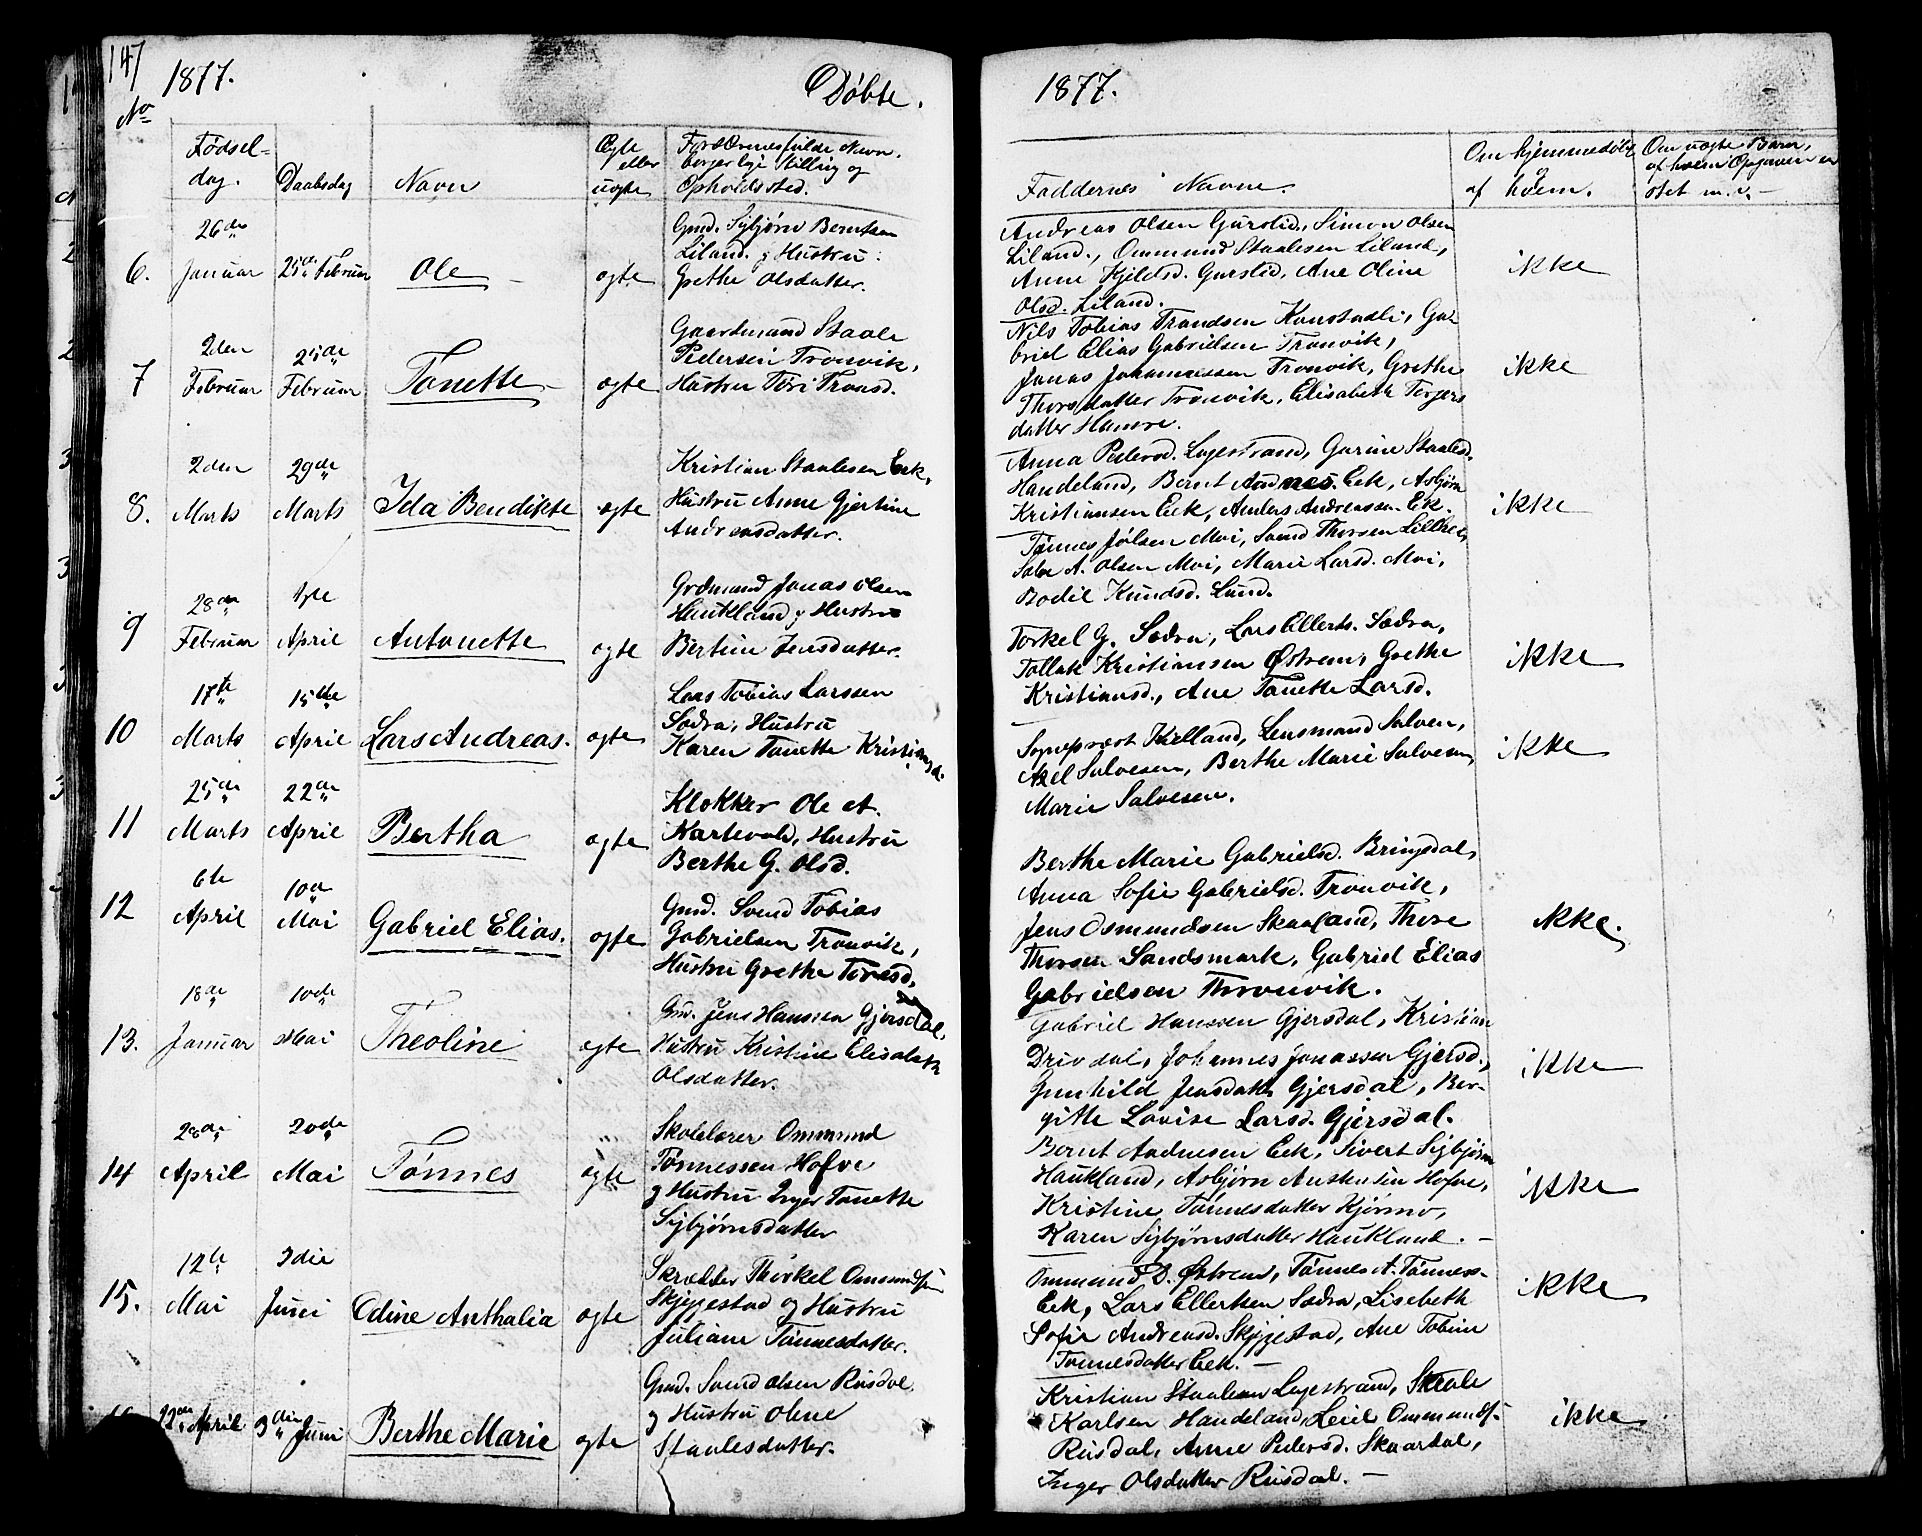 147
1877.
Døbte.
No
Fødsel-
dag.
Daabsdag
Navn
Ægte
eller
uægte
Forældrenes fulde Navn,
borgerlige Stilling og
Opholdssted.
26de
Januar
6.
25de Februar
Ole
ægte
Gmd. Sigbjørn Berntsen
Liland. og Hustru:
Grethe Olsdatter.
7
2den
Februar
25de
Februar
Tonette
ægte
Gaardmand Staale
Pedersen Tronvik,
Hustru Tori Tronsd.
8.
2den
Marts
29de
Marts
Ida Bendikte
ægte
Kristian Staalesen Eek,
Hustru Anne Gjertine
Andreasdatter.
9
28de
Februar
1ste
April
Antonette
ægte
Grdmand Jonas Olsen
Haukland og Hustru
Bertine Jensdatter.
10
17de
Marts
15de
April
Lars Andreas.
ægte
Lars Tobias Larssen
Sædra, Hustru
Karen Tonette Kristiansd.
11
25de
Marts
22de
April
Bertha
ægte
Klokker Ole A.
Kartevold, Hustru
Berthe G. Olsd.
12
6te
April
10de
Mai
Gabriel Elias.
ægte
Gmd. Svend Tobias
Gabrielsen Tronvik,
Hustru Grethe Toresd.
13.
18de
Januar
10de
Mai
Theoline
ægte
Gmd. Jens Hanssen Gjersdal,
Hustru Kristine Elisabeth
Olsdatter.
14
28de
April
20de
Mai
Tønnes
ægte
Skolelærer Ommund
Tønnessen Hofve
og Hustru Inger Tonette
Sigbjørnsdatter
15.
12te
Mai
3die
Juni
Odine Anthalia
ægte
Skrædder Thorkel Ommundsen
Skjeggestad og Hustru
Juliane Tønnesdatter.
22de April
3die Juni
Berthe Marie
ægte
Gmd. Svend Olsen Rusdal
og Hustru Olene
Staalesdatter.
1877.
Faddernes Navne.
Om hjemmedøbt og
af hvem.
Om uægte Børn,
af hvem Opgaven er
sket m. v.
Andreas Olsen Gurstid, Simon Olsen
Liland, Ommund Staalesen Liland,
Anne Kjeldsd. Gurstid, Ane Oline
Olsd. Liland.
ikke
Nils Tobias Trondsen Konstali, Ga-
briel Elias Gabrielsen Tronvik,
Jonas Johannessen Tronvik, Grethe
Thorsdatter Tronvik, Elisabeth Torgers
datter Hamre.
ikke
Anna Pedersd. Lygestrand, Gurine Staalesd.
Handeland, Bernt Andrées. Eek, Asbjørn
Kristiansen Eek, Anders Andreassen Eek.
ikke
Tønnes Jølsen Moi, Svend Thorsen Lillhei,
A. Olsen Moi, Marie Larsd. Moi,
Bodil Knudsd. Lund.
Torkel G. Sædra, Lars Ellerts. Sædra,
Tollak Kristiansen Østrem, Grethe
Kristiansd., Ane Tonette Larsd.
ikke
Sognepræst Kielland, Lensmand Salvesen,
Axel Salvesen, Berthe Marie Salvesen,
Marie Salvesen.
ikke
Berthe Marie Gabrielsd. Bringedal,
Anna Sofie Gabrielsd. Tronvik,
Jens Osmundsen Skaaland, Thore
Thorsen Sandsmark, Gabriel Elias
Gabrielsen Thronvik.
ikke.
Gabriel Hanssen Gjersdal, Kristian
Drivdal, Johannes Jonassen Gjersd.,
Gunhild Jensdatter Gjersdal, Ber-
gitte Lovise Larsd. Gjersdal.
ikke
Bernt Andreesen Eek, Sivert Sigbjørns
Haukland, Asbjørn Austensen Hofve,
Kristine Tønnesdatter Kjørmo,
Karen Sigbjørnsdatter Haukland. –
ikke
Ommund D. Østrem, Tønnes A. Tønness.
Eek, Lars Ellertsen Sædra, Lisebeth
Sofie Andreasd. Skjeggestad, Ane Tobine
Tønnesdatter Eek. –
ikke
Kristian Staalesen Lygestrand, Staale
Karlsen Handeland, Leiel Ommunds.
Rusdal, Anne Pedersd. Skaardal,
Inger Olsdatter Rusdal. –
ikke